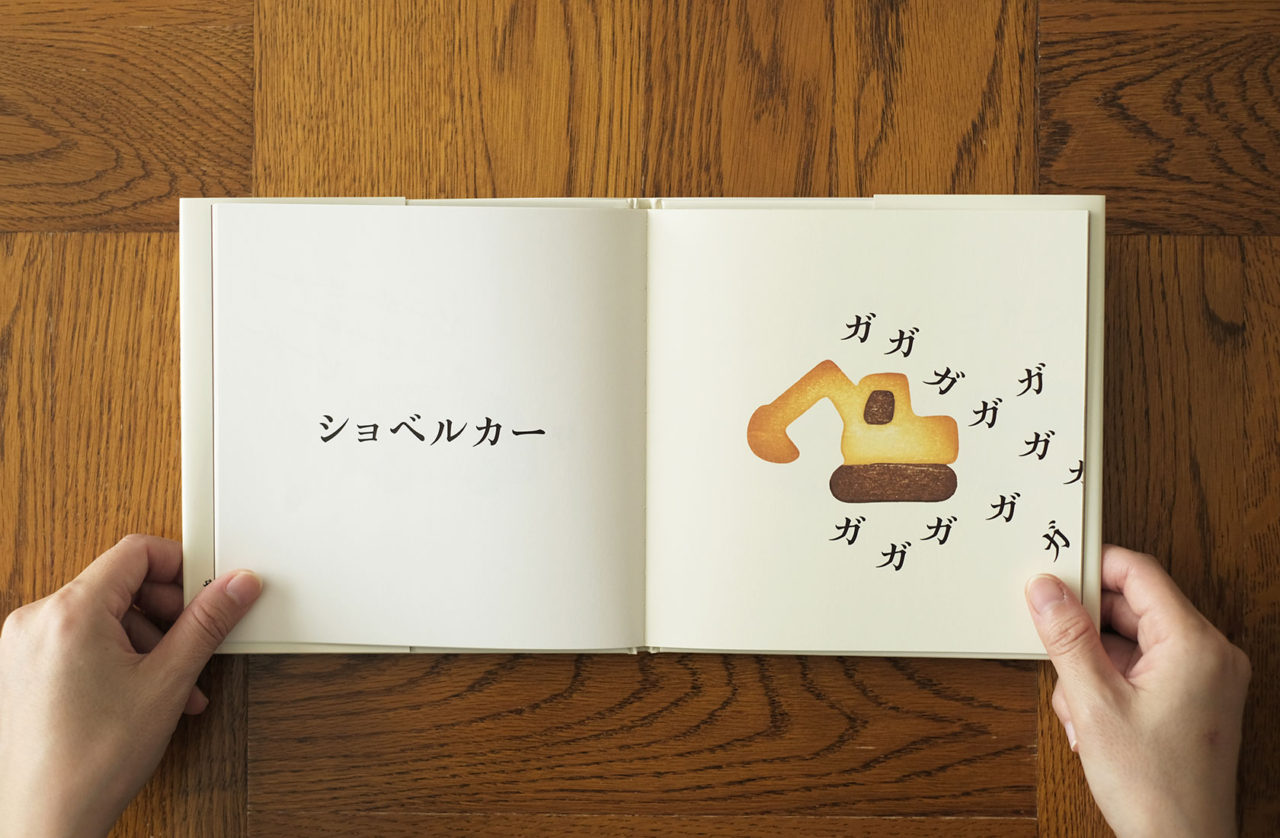 ショベルカー
ガ
ガ
ガ
ガ
ガ
ガ
ガ
ガ
ガ
ガ
ガ